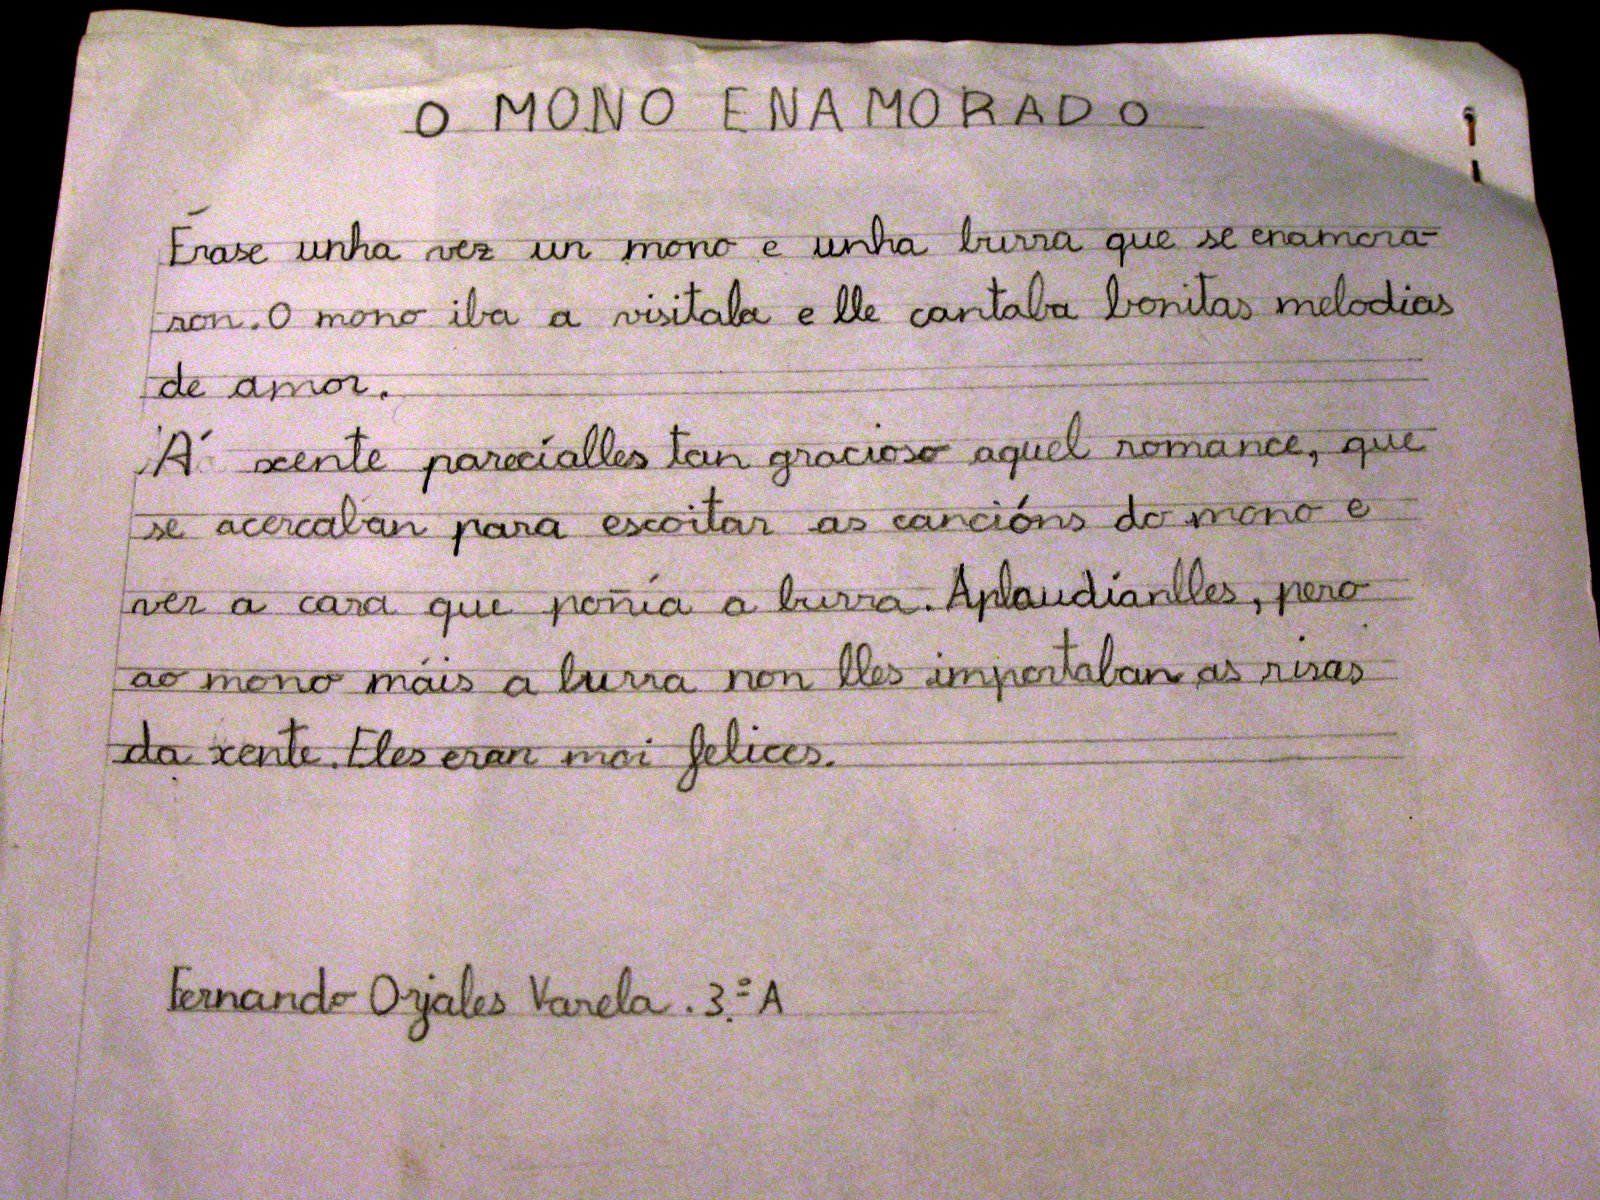 O MONO ENAMORADO
Érase unha vez un mono e unha burra que se enamora-
ron. O mono iba a visitala e lle cantaba bonitas melodias
de amor.
Á xente parecíalles tan gracioso aquel romance, que
se acercaban para escoitar as cancións do mono e
ver a cara que poñía a burra. Aplaudíanlles, pero
ao mono máis a burra non lles importaban as risas
da xente. Eles eran moi felices.
Fernando Orjales Varela. 3.º A